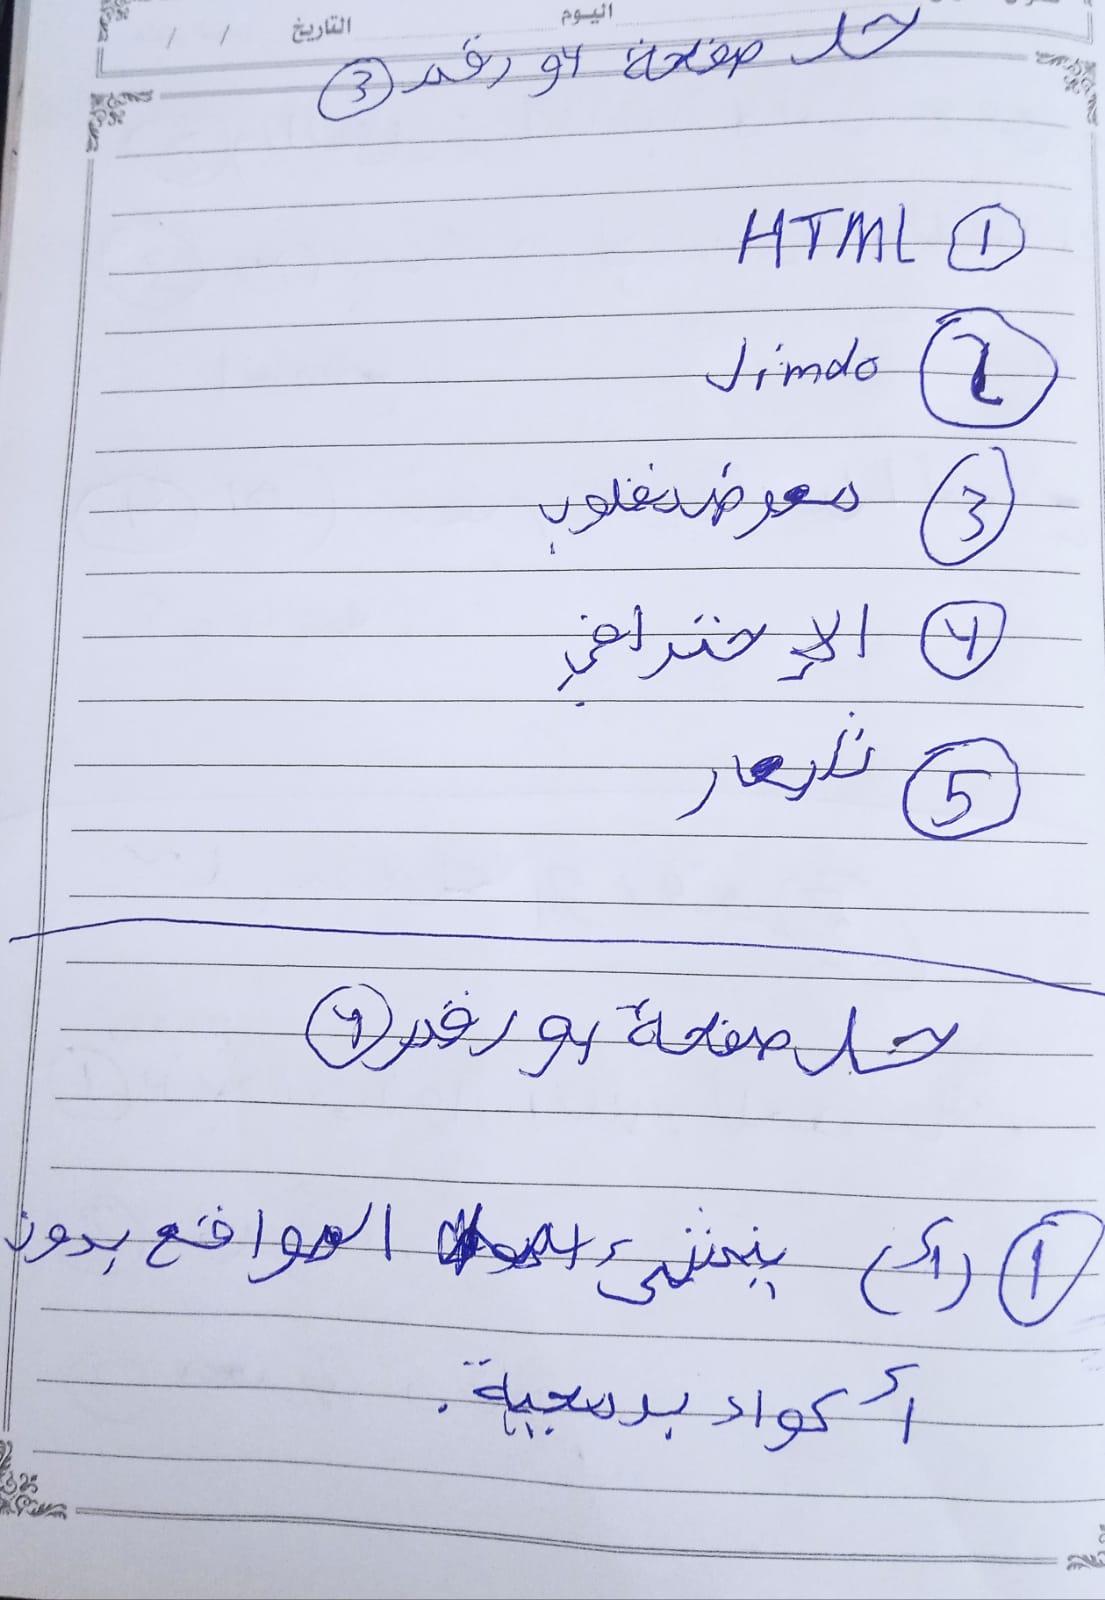 اليوم
التاريخ / /
حل صفحة 40 رقم (3)
(1) HTML
(2) Jimdo
(3) معرض فلوب
(4) الإحترافي
(5) شعار
حل صفحة 40 رقم (4)
(1) (أ) ينشئ المواقع بدون
أكواد برمجية.